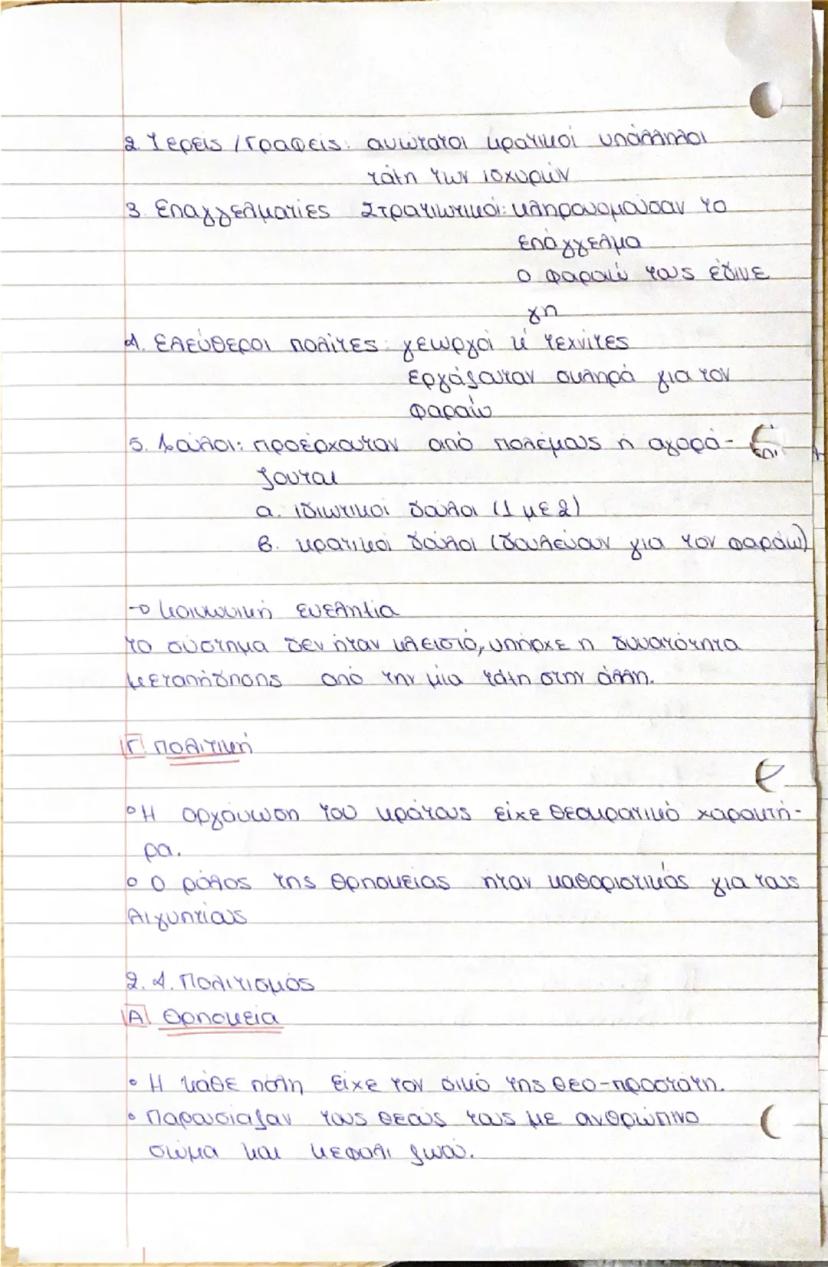 2. Ιερείς / Γραφείς: ανώτατοι κρατικοί υπάλληλοι
τάξη των ισχυρών
3. Επαγγελματίες Στρατιωτικοί: κληρονομούσαν το
επάγγελμα
ο φαραώ τους έδινε
γη
4. Ελεύθεροι πολίτες: γεωργοί κ' τεχνίτες
εργάζονταν σκληρά για τον
φαραώ
5. Δούλοι: προέρχονταν από πολέμους ή αγορά-
ζονται
α. ιδιωτικοί δούλοι (1 με 2)
β. κρατικοί δούλοι (δούλευαν για τον φαραώ)
→ Κοινωνική ευελιξία
το σύστημα δεν ήταν κλειστό, υπήρχε η δυνατότητα
μεταπήδησης από την μία τάξη στην άλλη.
Γ. Πολιτική
• Η οργάνωση του κράτους είχε θεοκρατικό χαρακτή-
ρα.
• Ο ρόλος της θρησκείας ήταν καθοριστικός για τους
Αιγυπτίους
2.4. Πολιτισμός
Α. Θρησκεία
• Η κάθε πόλη είχε τον δικό της θεο-προστάτη.
• Παρουσίαζαν τους θεούς τους με ανθρώπινο
σώμα και κεφάλι ζωού.